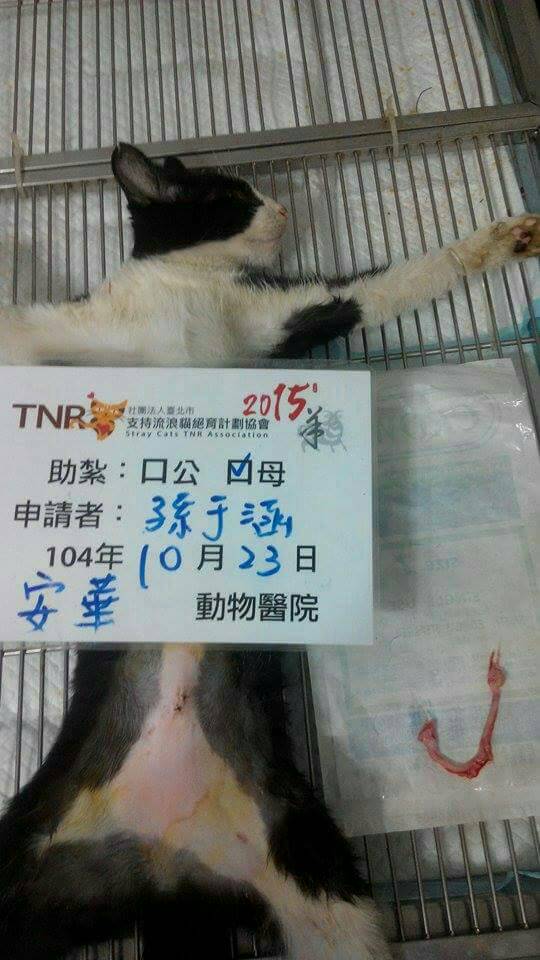 TNR 社團法人臺北市
支持流浪貓絕育計劃協會
Stray Cats TNR Association
2015 羊
助紮：口公 口母
申請者：孫于涵
104年 10月 23日
安華 動物醫院